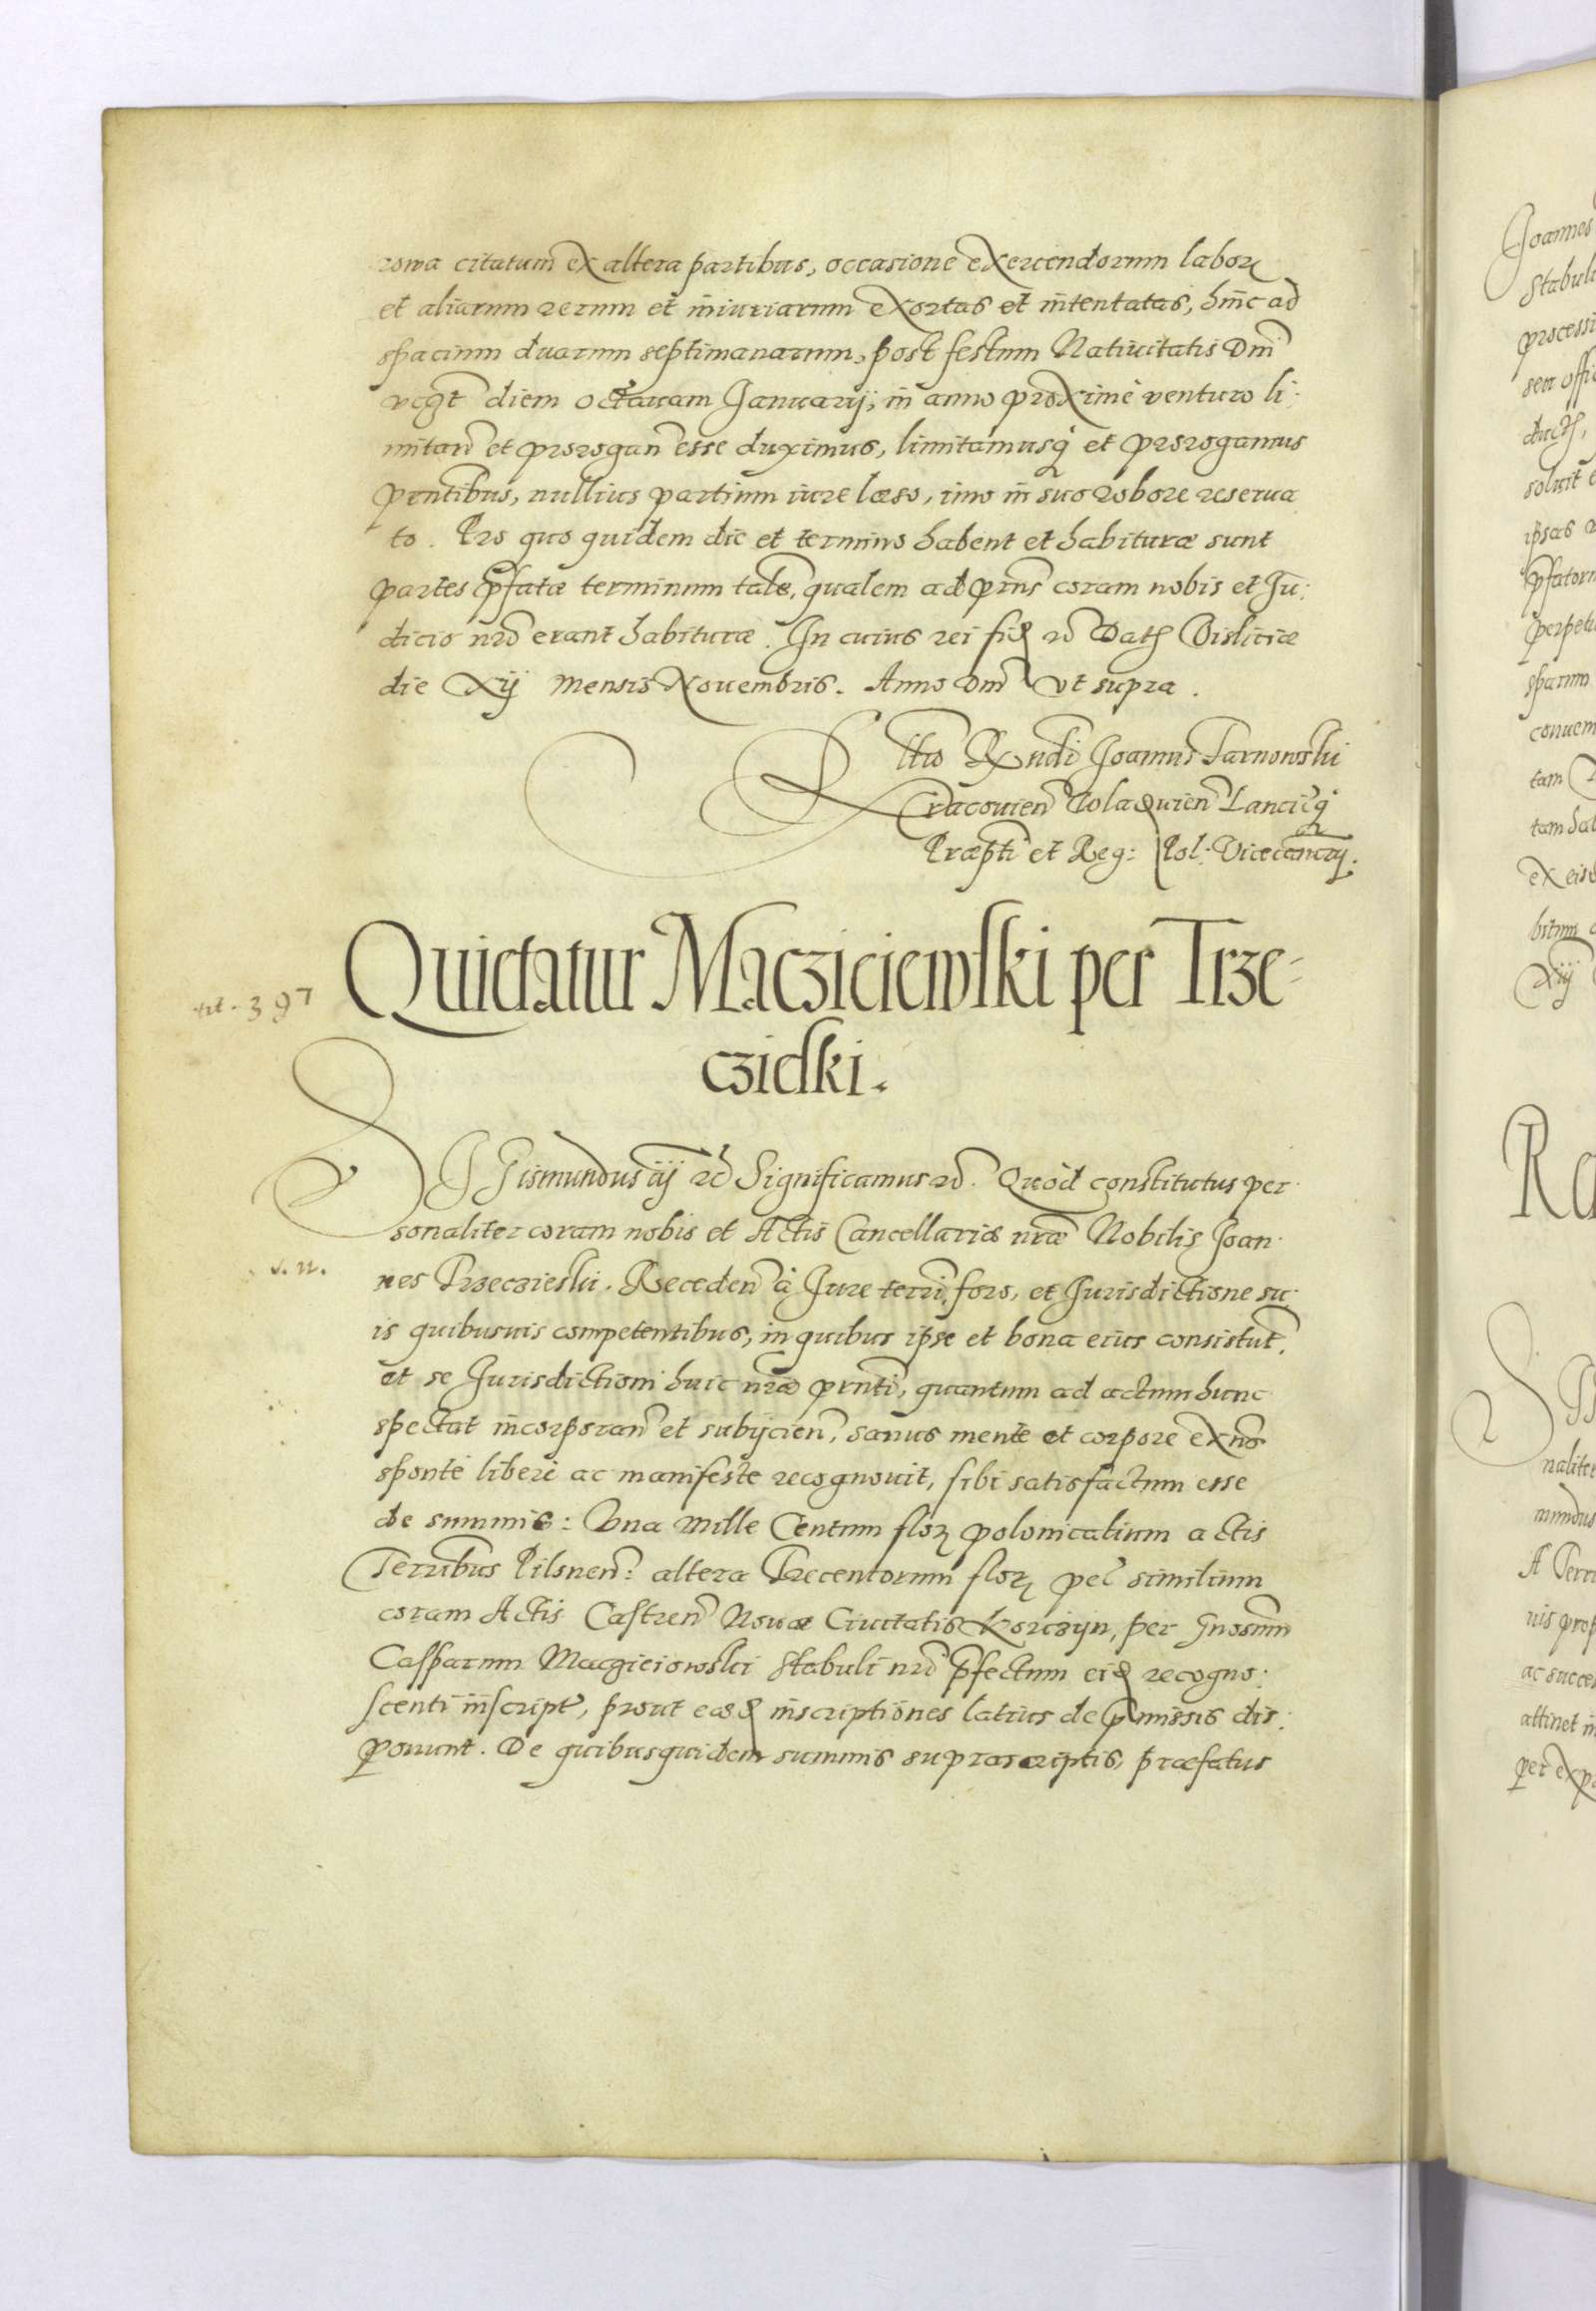 rowa citatum ex altera partibus, occasione exercendorum labor
et aliarum rerum et iniuriarum exortas et intentatas, hinc ad
spacium duarum septimanarum, post festum Natiuitatis Dni
vcgt diem octauam Januarij, in anno proxime venturo li:
mitan et prorogan esse duximus, limitamusq et prorogamus
pntibus, nullius partium iure læso, imo in suo robore reserua
to. Pro quo quidem die et termino habent et habituræ sunt
partes pfatæ terminum tale, qualem ad pns coram nobis et Ju:
dicio nro erant habituræ. In cuius rei fid rc Dat Visliciæ
die Xij mensis Nouembris. Anno Dni vt supra.
Rltio Rxndi Joannis Tarnowski
Cracouien Wladislauien Lanciciq
Præpti et Reg: Pol: Vicecancrij.
Quietatur Maczieiewski per Trze-
czieski.
tit. 397
SIGismundus iij rc Significamus rc. Quod constitutus per
sonaliter coram nobis et Actis Cancellariæ nræ Nobilis Joan
nes Trzeczieski. Receden à Jure terri, foro, et Jurisdictione su
is quibusuis competentibus, in quibus ipse et bona eius consistut,
et se Jurisdictioni huic nræ pnti, quantum ad actum hunc
spectat incorporan et subijcien, sanus mente et corpore exns
sponte libere ac manifeste recognouit, sibi satisfactum esse
de summis: Vna Mille Centum flor polonicalium actis
Terribus Pilsnen: altera Trecentorum flor pel similium
coram Actis Castren Nouæ Ciuitatis Korczyn, per Gnosum
Casparum Maczieiowski Stabuli nri pfectum eid recogno:
scenti inscript, prout eæd inscriptiones latius de pmissis dis:
ponunt. De quibusquidem summis suprascriptis, præfatus